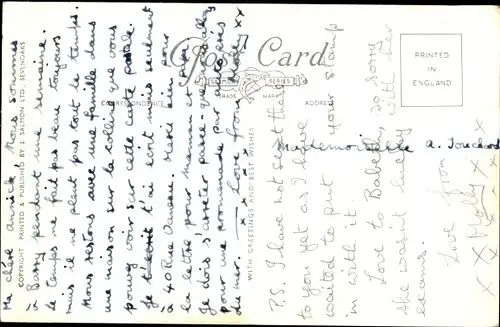 Ma chère Annick, Nous sommes
à Barry pendant une semaine.
Le temps ne fait pas beau toujours
mais il ne pleut pas tout le temps.
Nous restons avec une famille dans
une maison sur la colline que vous
pouvez voir sur cette carte postale.
Je t'ai écrit mais seulement
à 40 Rue Merci aussi pour
la lettre pour maman et papa.
Je dois s'arrêter parce-que nous allons
pour une promenade pur
du mer. — Love from
x x x x x x x x
P.S. I have not sent the
to you yet as I have
waited to put your stamp
in with it.
Love to Babette, so sorry
she wasn't lucky with her
exams.
Love from
Molly x x
x x x x
Post Card
J. SALMON SERIES
TRADE MARK
CORRESPONDENCE
ADDRESS
PRINTED
IN
ENGLAND
Mademoiselle A. Touchard
COPYRIGHT PRINTED & PUBLISHED BY J. SALMON LTD. SEVENOAKS
WITH GREETINGS AND BEST WISHES